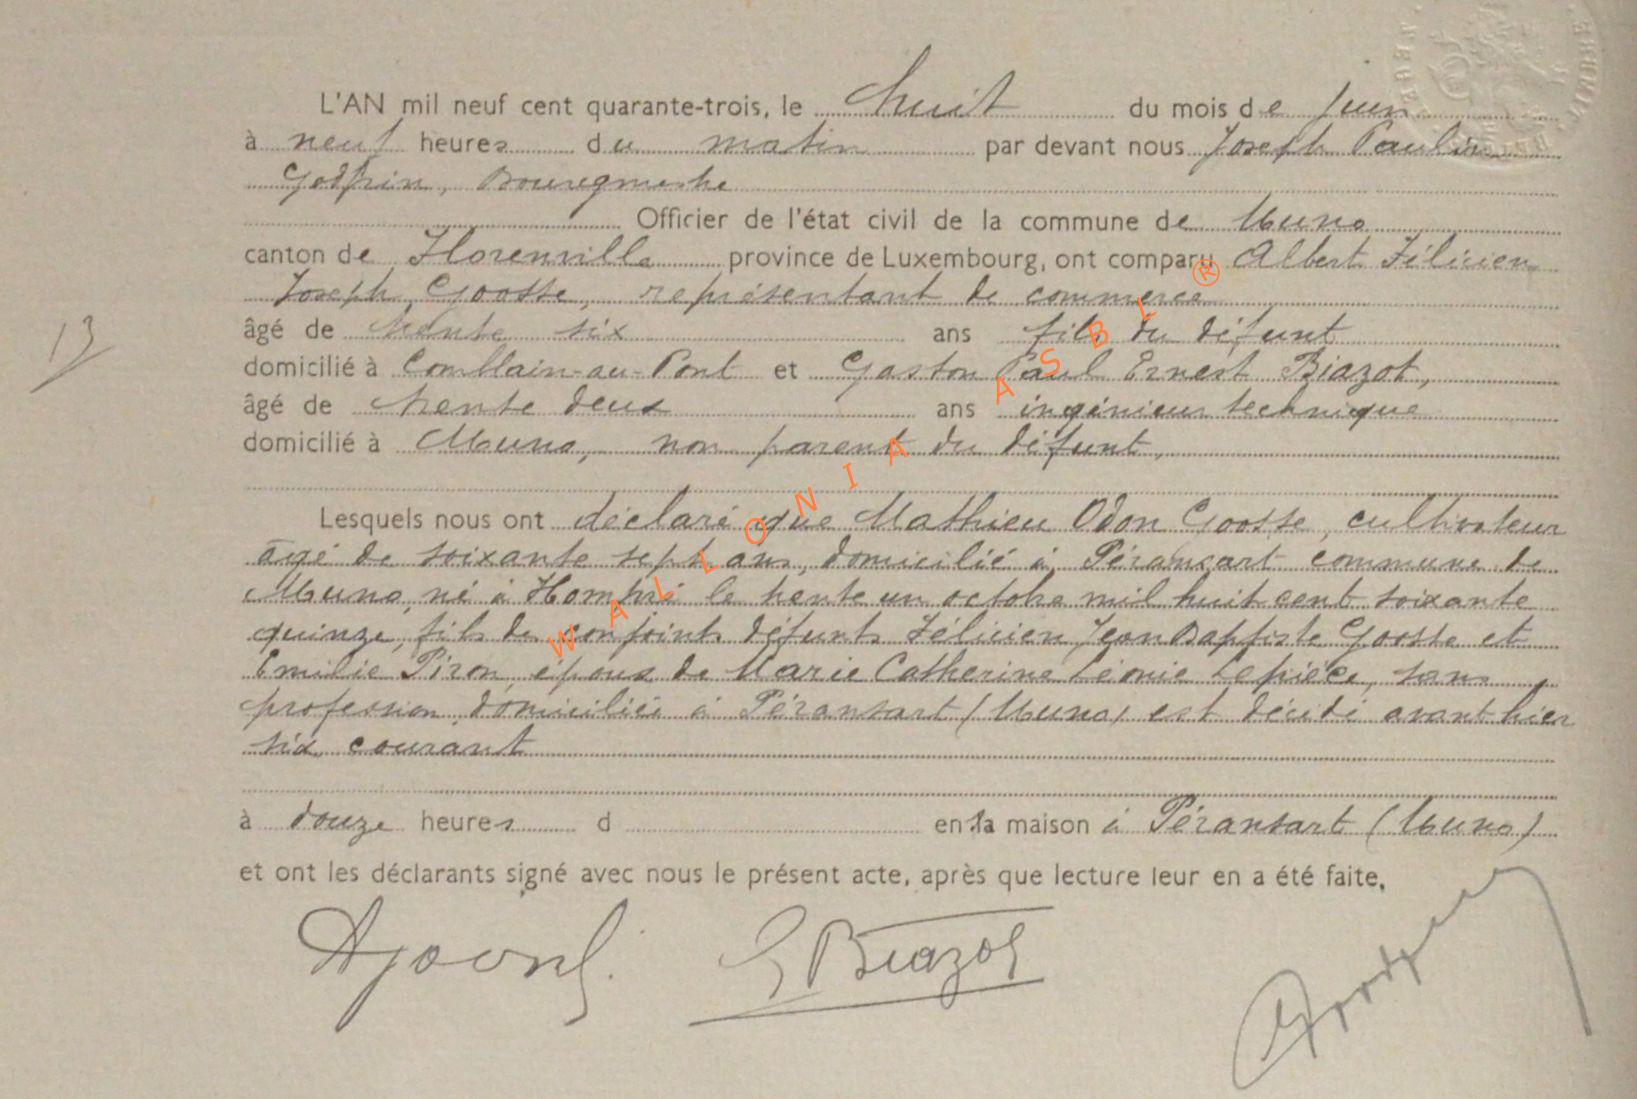 L'AN mil neuf cent quarante-trois, le huit du mois de juin
à neuf heures du matin par devant nous Joseph Paulin
Godfrin, Bourgmestre
Officier de l'état civil de la commune de Muno
canton de Florenville province de Luxembourg, ont comparu Albert Félicien
Joseph Goosse, représentant de commerce
âgé de trente six ans fils du défunt
domicilié à Comblain-au-Pont et Gaston Paul Ernest Biazot,
13
âgé de trente deux ans ingénieur technique
domicilié à Muno, non parent du défunt,
Lesquels nous ont déclaré que Mathieu Odon Goosse, cultivateur
âgé de soixante sept ans, domicilié à Péransart commune de
Muno, né à Hompré le trente un octobre mil huit cent soixante
quinze, fils de conjoints défunts Félicien Jean Baptiste Goosse et
Emilie Piron, époux de Marie Catherine Léonie Lepièce, sans
profession, domiciliée à Péransart (Muno) est décédé avant hier
six courant
à douze heures d en la maison à Péransart (Muno)
et ont les déclarants signé avec nous le présent acte, après que lecture leur en a été faite,
G Biazot
WALLONIA ASBL ®